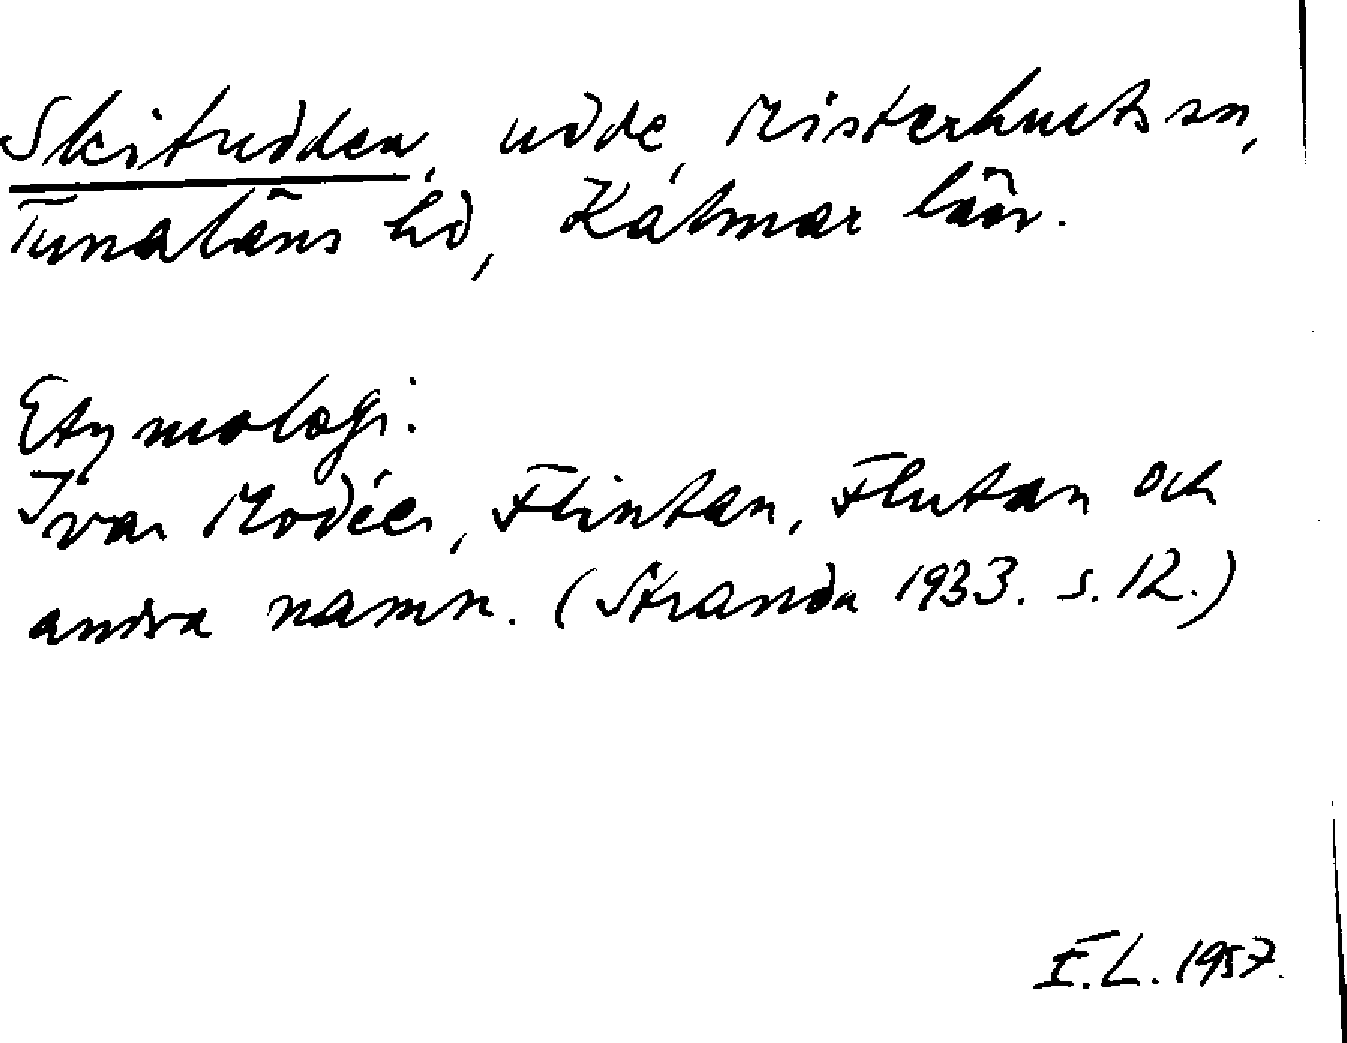 Skitudden, udde, Misterhults sn,
Tunaläns hd, Kalmar län.
Etymologi:
Ivar Modéer, Flintan, Flutan och
andra namn. (Stranda 1933. s. 12.)
F.L. 1957.